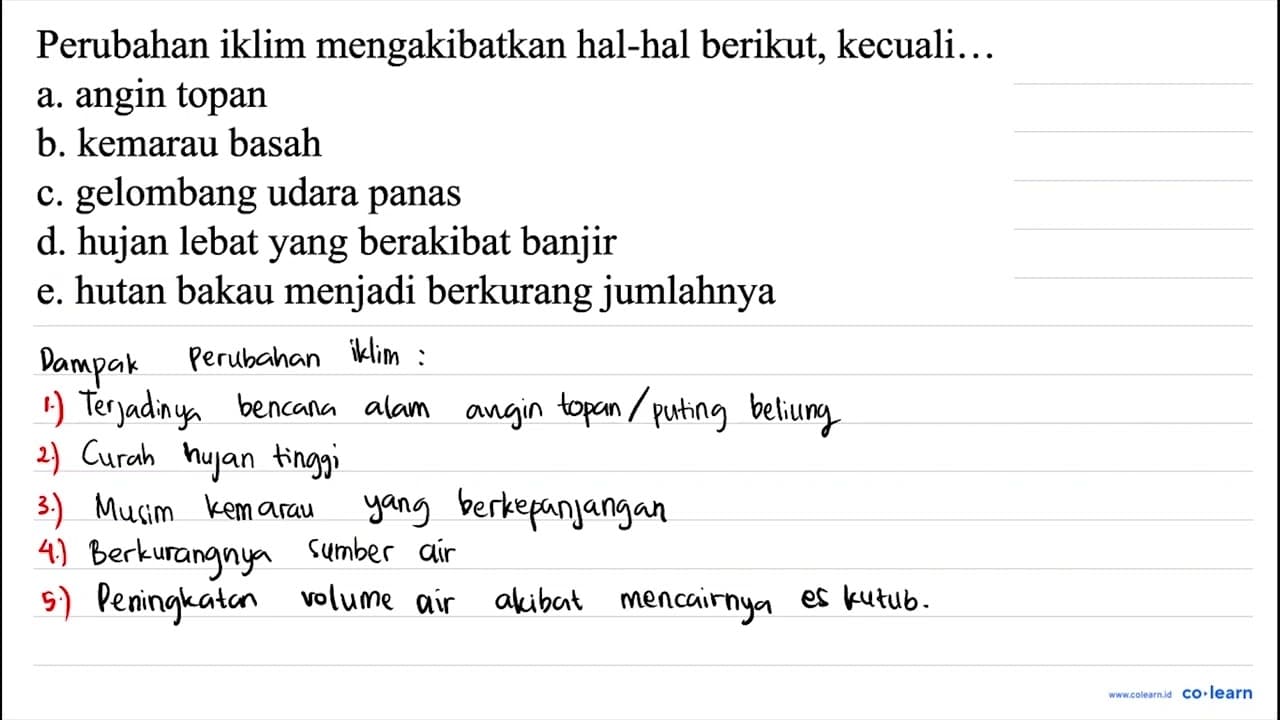 Perubahan iklim mengakibatkan hal-hal berikut, kecuali...
a. angin topan
b. kemarau basah
c. gelombang udara panas
d. hujan lebat yang berakibat banjir
e. hutan bakau menjadi berkurang jumlahnya
Dampak Perubahan iklim :
1.) Terjadinya bencana alam angin topan/puting beliung
2.) Curah hujan tinggi
3.) Musim kemarau yang berkepanjangan
4.) Berkurangnya sumber air
5.) Peningkatan volume air akibat mencairnya es kutub.
www.colearn.id co·learn